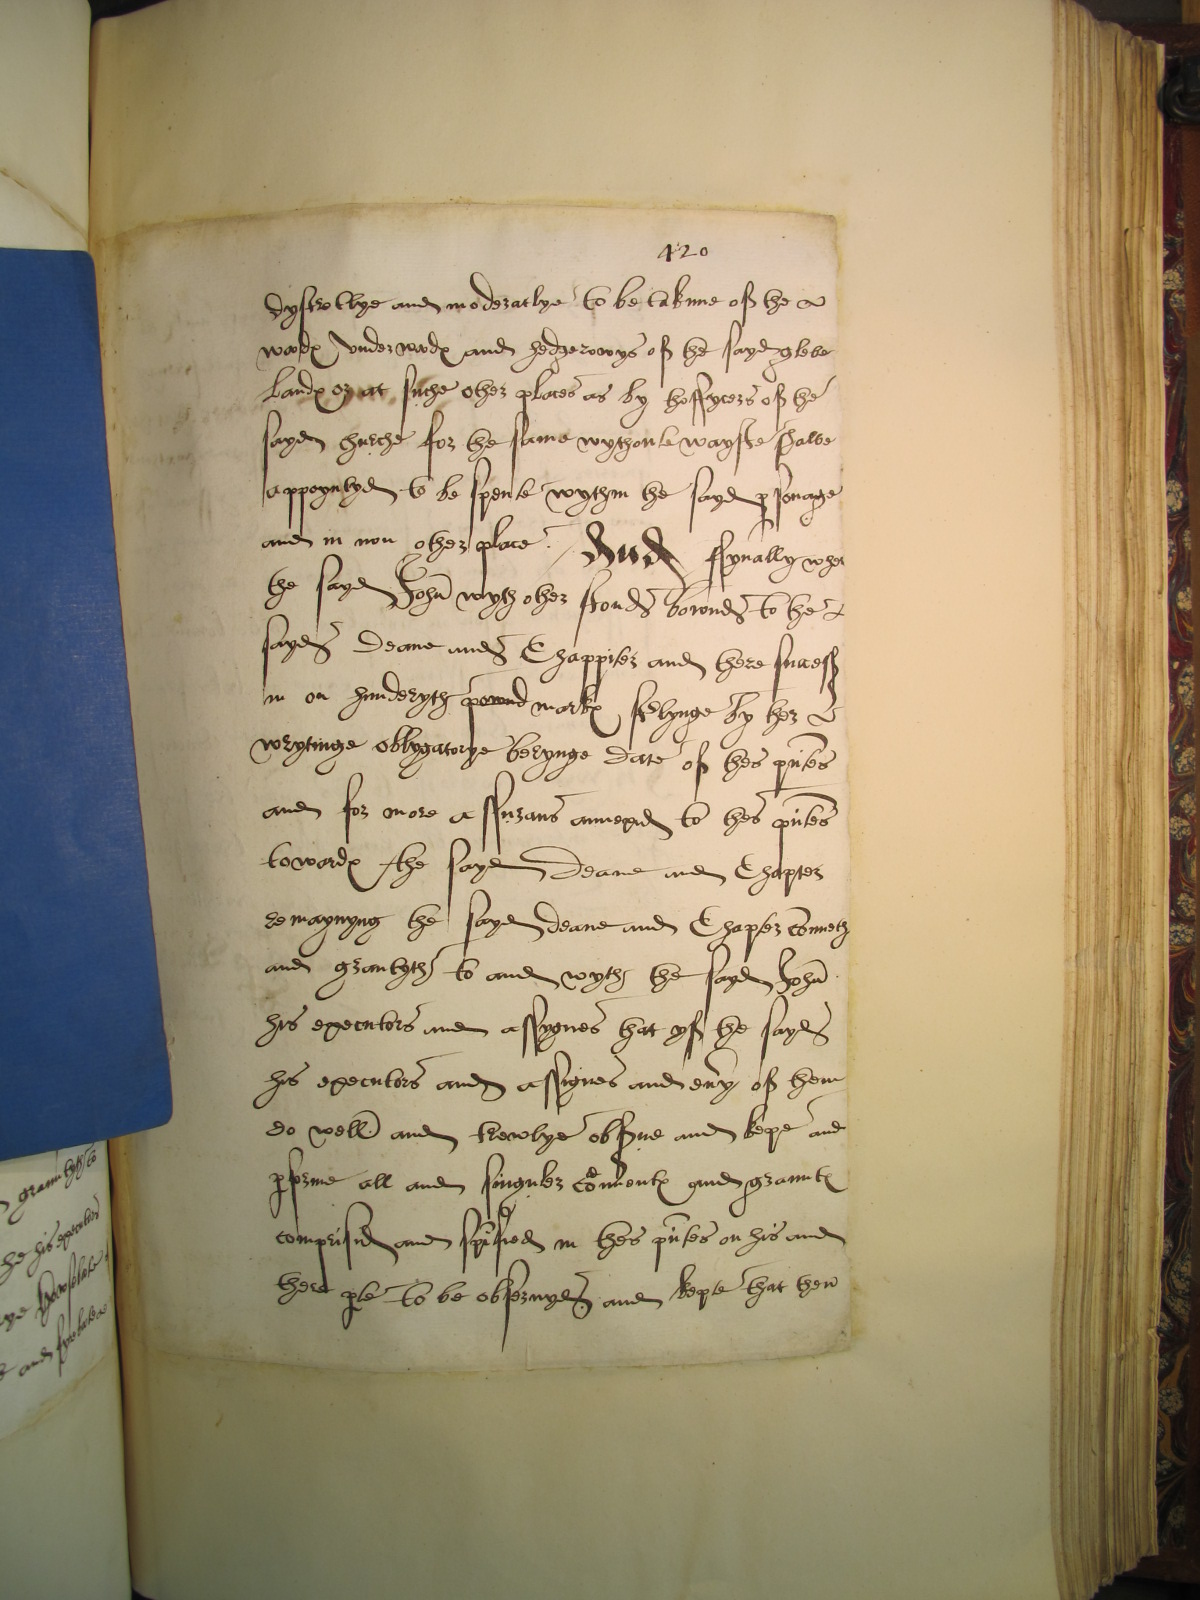 420
dyscretlye and moderatlye to be takine off the
woodes underwoodes and hedgerowys off the sayd glebe
landes or at suche other places as by thoffycers off the
sayd churche for the same wythoute wayste shalbe
appoyntyd to be spente wythin the sayd personage
and in non other place. And ffynally wher
the sayd John wyth other stonds bownds to the
sayds Deane and Chappiter and there success
in on hunderyth pownd markes sterlynge by ther
wrytinge oblygatorye berynge date off thes pntes
and for more assurans annexid to thes pntes
towardes the sayd Deane and Chapter
remaynyng the sayd deane and Chapter
and grantyth to and wyth the sayd John
his executors and assygnes that yff the sayds
his executors and assignes and evry off them
do well and trewlye observe and kepe and
performe all and singuler covenntes and grauntes
comprisid and spified in thes pntes on his and
there pte to be observyd and kepte that then
grauntyth to
the his executors
and fyrebote